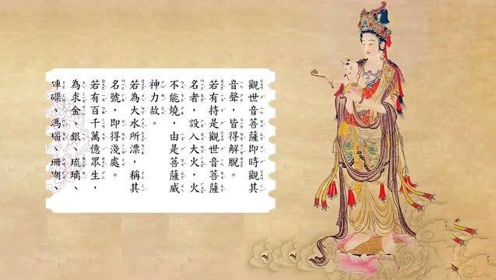 觀世音菩薩即時觀其
音聲，皆得解脫。
若有持是觀世音菩薩
名者，設入大火，火
不能燒，由是菩薩威
神力故。
若為大水所漂，稱其
名號，即得淺處。
若有百千萬億眾生，
為求金、銀、琉璃、
硨磲、瑪瑙、珊瑚、